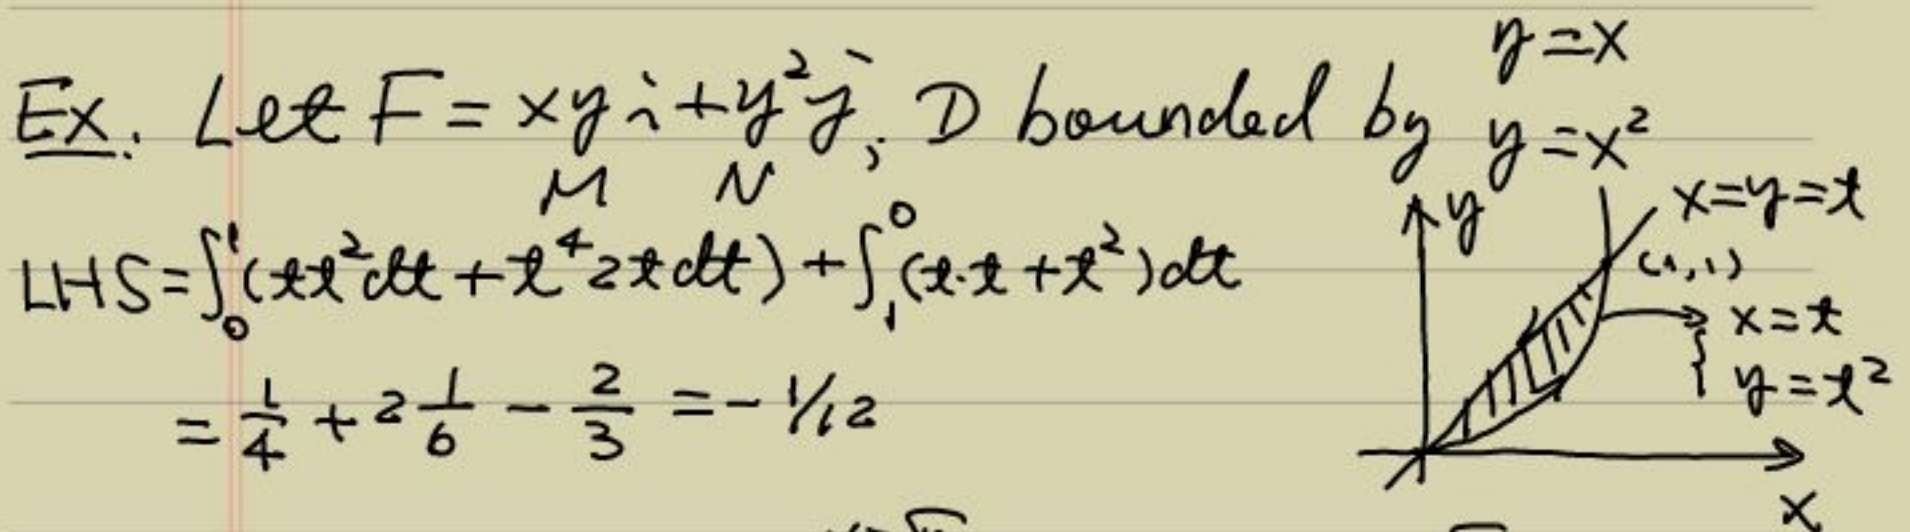 Ex. Let F = xy i + y² j, D bounded by y = x
y = x²
M N
LHS = ∫₀¹ (t t² dt + t⁴ 2t dt) + ∫₁⁰ (t·t + t²) dt
= 1/4 + 2 1/6 − 2/3 = − 1/12
y
x = y = t
(1,1)
x = t
y = t²
x